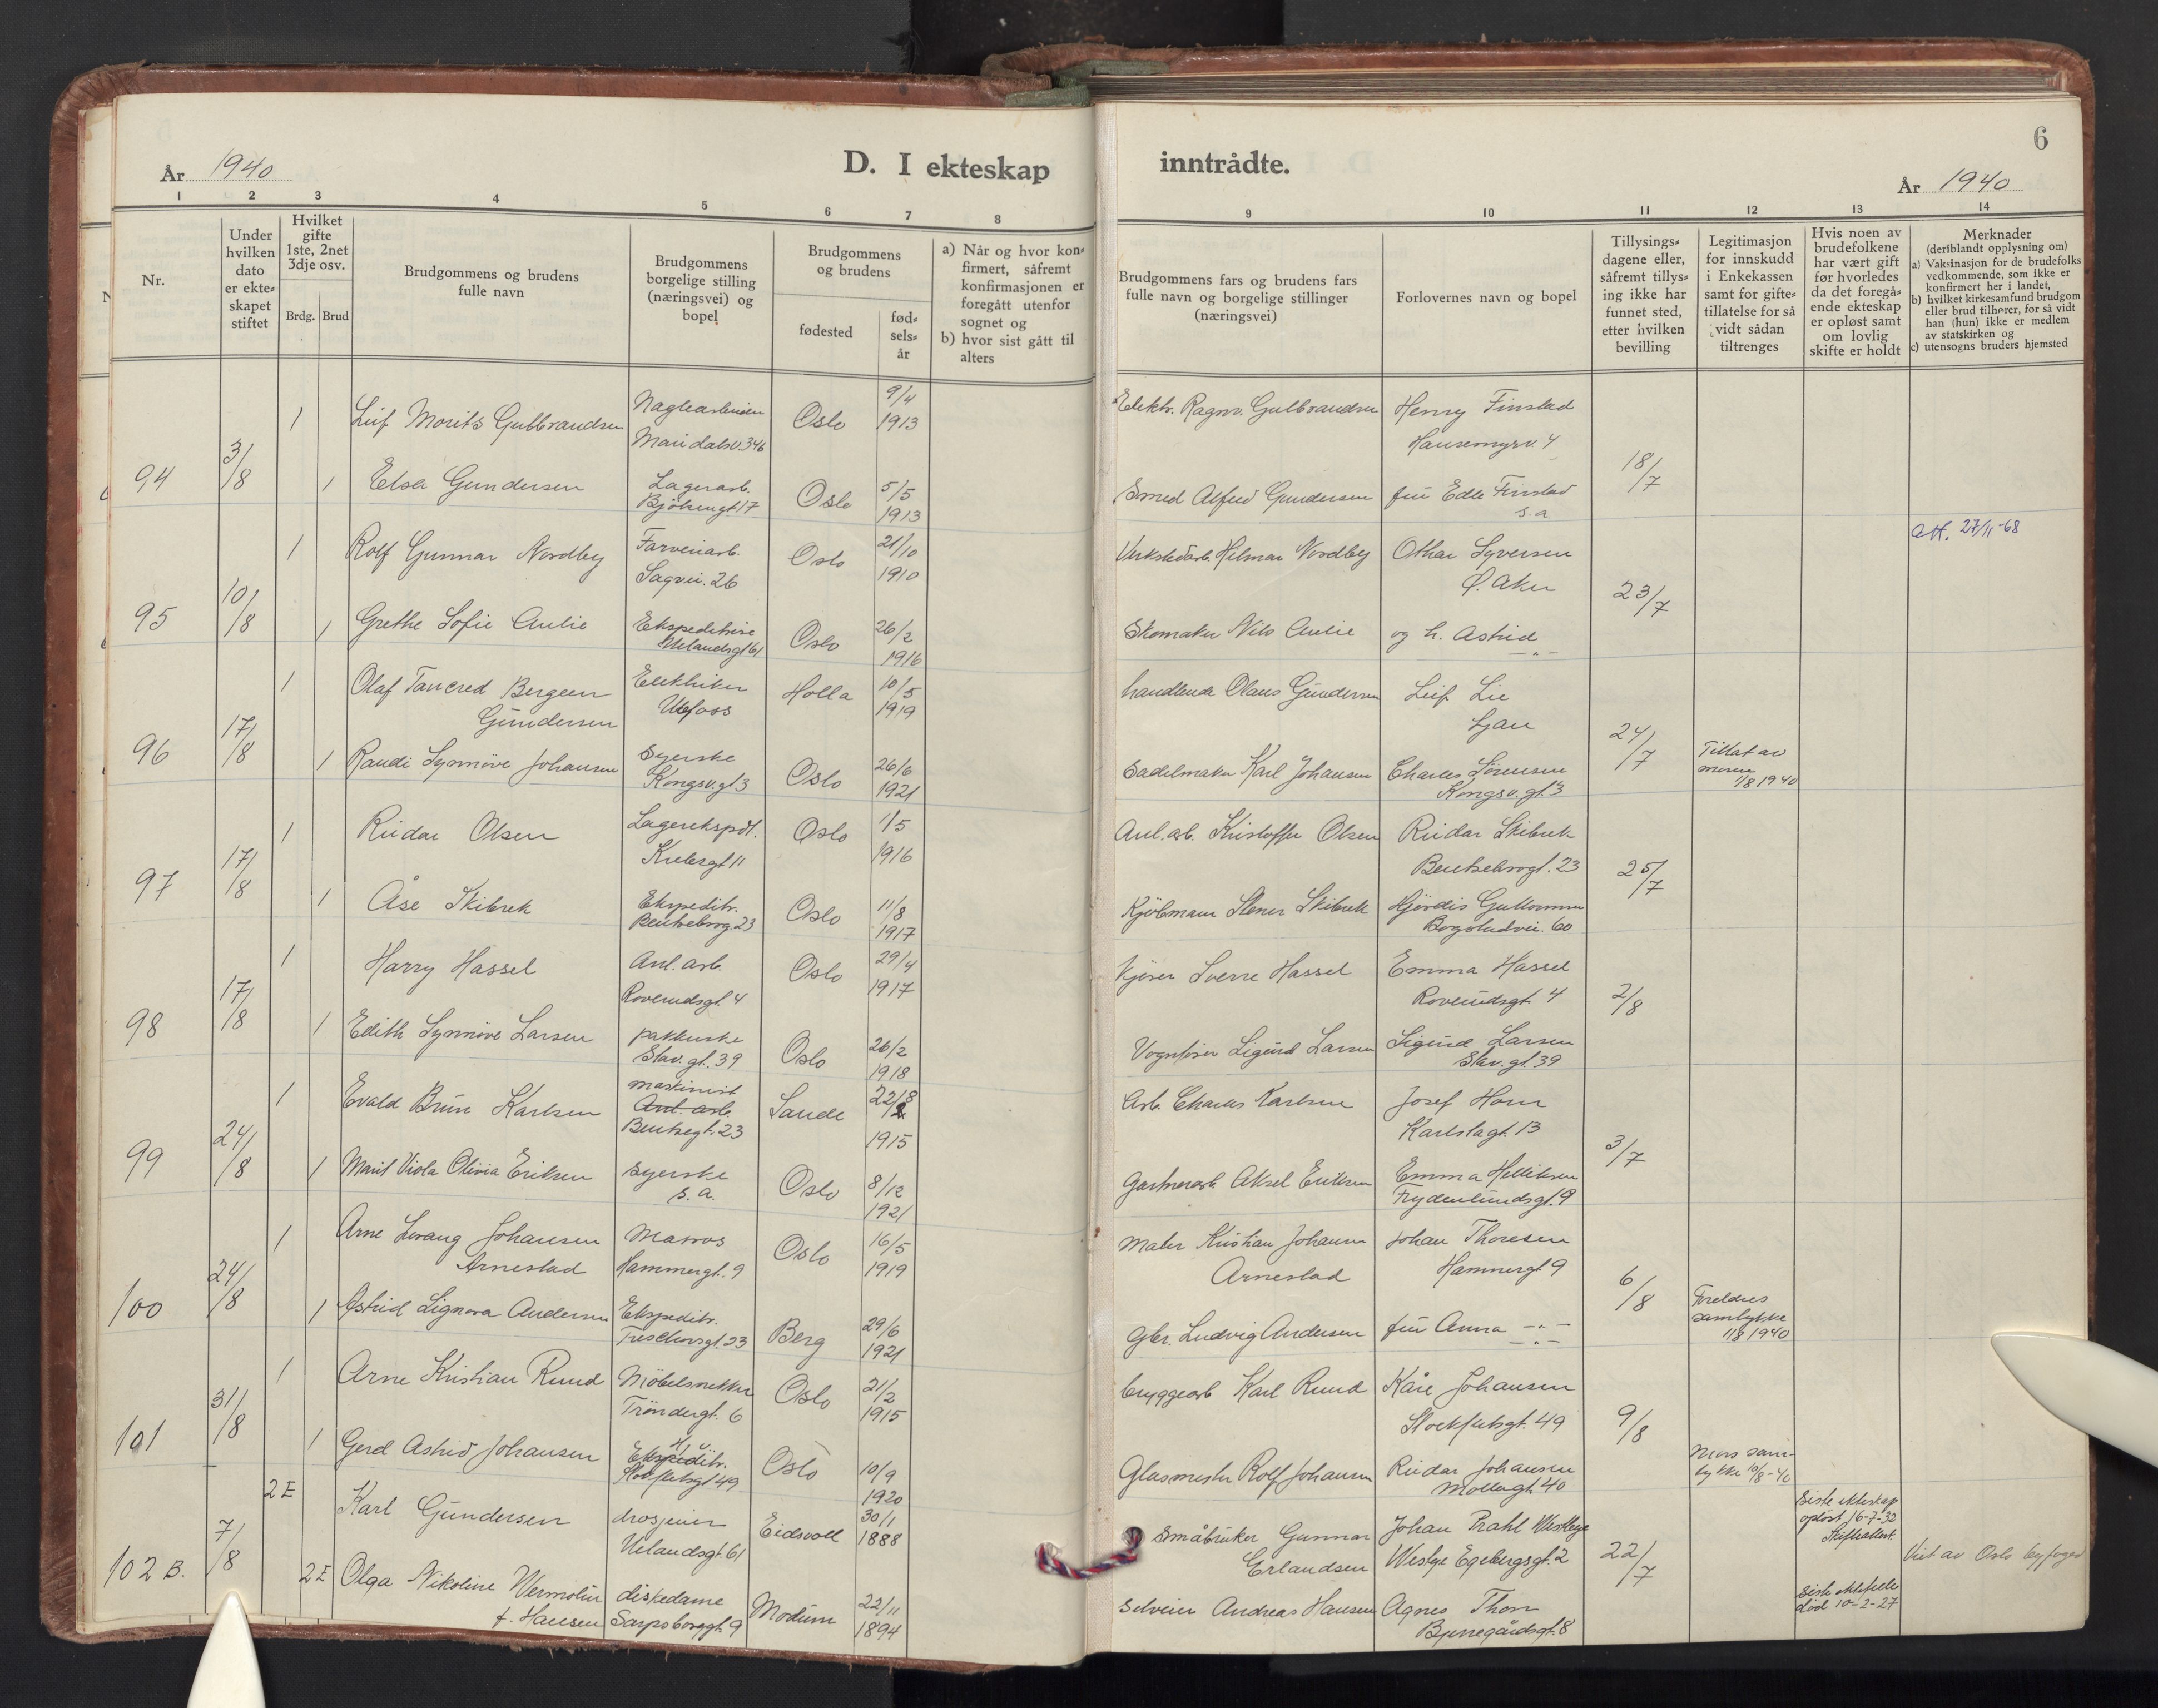 6
År 1940
D. I ekteskap inntrådte.
År 1940
1 2 3 4 5 6 7 8 9 10 11 12 13 14
Nr.
Under
hvilken
dato
er ekte-
skapet
stiftet
Hvilket
gifte
1ste, 2net
3dje osv.
Brdg. Brud
Brudgommens og brudens
fulle navn
Brudgommens
borgelige stilling
(næringsvei) og
bopel
Brudgommens
og brudens
fødested
fød-
sels-
år
a) Når og hvor kon-
firmert, såfremt
konfirmasjonen er
foregått utenfor
sognet og
b) hvor sist gått til
alters
Brudgommens fars og brudens fars
fulle navn og borgelige stillinger
(næringsvei)
Forlovernes navn og bopel
Tillysings-
dagene eller,
såfremt tillys-
ing ikke har
funnet sted,
etter hvilken
bevilling
Legitimasjon
for innskudd
i Enkekassen
samt for gifte-
tillatelse for så
vidt sådan
tiltrenges
Hvis noen av
brudefolkene
har vært gift
før hvorledes
da det foregå-
ende ekteskap
er opløst samt
om lovlig
skifte er holdt
Merknader
(deriblandt opplysning om)
a) Vaksinasjon for de brudefolks
vedkommende, som ikke er
konfirmert her i landet,
b) hvilket kirkesamfund brudgom
eller brud tilhører, for så vidt
han (hun) ikke er medlem
av statskirken og
c) utensogns bruders hjemsted
94 3/8
1 Leif Morits Gulbrandsen
Maridalsv. 346
Oslo 9/4 1913
Elektr. Ragnv. Gulbrandsen
Henry Finstad
Hausemyrv. 4
18/7
1 Elsa Gundersen
Lagerarb.
Bjölsengt 17
Oslo 5/5 1913
Smed Alfred Gundersen
fru Edle Finstad
s.a
95 10/8
1 Rolf Gunnar Nordby
Farveriarb.
Sagvei. 26
Oslo 21/10 1910
Verkstedarb. Hilmar Nordby
Othar Syversen
Ø. Aker
23/7
27/11-68
1 Grethe Sofie Aulie
Ekspeditrise
Uelandsgt 61
Oslo 26/2 1916
Skomaker Nils Aulie
og h. Astrid
— " —
96 17/8
1 Olaf Tancred Bergeen
Gundersen
Elektriker
Ulefoss
Holla 10/5 1919
handlende Olaus Gundersen
Leif Lie
Ljan
24/7
1 Randi Synnöve Johansen
Syerske
Kongsv.gt 3
Oslo 26/6 1921
Sadelmaker Karl Johansen
Charles Sörensen
Kongsv.gt. 3
Tillat av
moren
1/8 1940
97 17/8
1 Reidar Olsen
Lagerekspdt.
Krebsgt 11
Oslo 1/5 1916
Anl. arb. Kristoffer Olsen
Reidar Skibrek
Bentsebrogt. 23
25/7
1 Åse Skibrek
Ekspeditr.
Bentsebrog. 23
Oslo 11/8 1917
Kjöbmann Stener Skibrek
Hjördis
Bogstadvei. 60
98 17/8
1 Harry Hassel
Anl. arb.
Roverudsgt. 4
Oslo 29/4 1917
Kjörer Sverre Hassel
Emma Hassel
Roverudsgt 4
2/8
1 Edith Synnöve Larsen
pakkerske
Stav.gt. 39
Oslo 26/2 1918
Vognfører Sigurd Larsen
Sigurd Larsen
Stav.gt. 39
99 24/8
1 Evald Brun Karlsen
maskinist
Anl. arb.
Bentsegt. 23
Sande 22/8 1915
Arb. Charles Karlsen
Josef Horn
Karlstagt. 13
3/7
1 Marit Viola Olivia Eriksen
syerske
s. a.
Oslo 8/12 1921
Gartnerarb Aksel Eriksen
Emma Helliksen
Frydenlundsgt. 9
100 24/8
1 Arne Levang Johansen
Arnestad
Matros
Hammergt. 9
Oslo 16/5 1919
Maler Kristian Johansen
Arnestad
Johan Thoresen
Hammergt 9
6/8
1 Astrid Signora Andersen
Ekspeditr.
Treschowsgt. 23
Berg 29/6 1921
Gbr. Ludvig Andersen
fru Anna — " —
— " —
Foreldres
samtykke
1/8 1940
101 31/8
1 Arne Kristian Ruud
Möbelsnekker
Tröndergt. 6
Oslo 21/2 1915
bryggearb Karl Ruud
Kåre Johansen
Stockfletsgt. 49
9/8
1 Gerd Astrid Johansen
Ekspeditr.
Stockfletsgt 49
Oslo 10/9 1920
Glasmester Rolf Johansen
Reidar Johansen
Mollergt 40
Mors sam-
tykke 10/8-40
102 B. 7/8
2 E Karl Gundersen
drosjeeier
Uelandsgt. 61
Eidsvoll 30/1 1888
Småbruker Gunnar
Erlandsen
Johan Prahl Westbye
Westye Egebergsgt. 2
22/7
Siste ekteskap
oplöst 16-7-32
Viet av Oslo byfoged
2 E Olga Nikoline Wermolin
f. Hansen
diskedame
Sarpsborggt. 9
Modum 22/11 1894
Selveier Andreas Hansen
Agnes Thon
Bjerregårdsgt. 8
Siste ektefelle
död 10-2-27